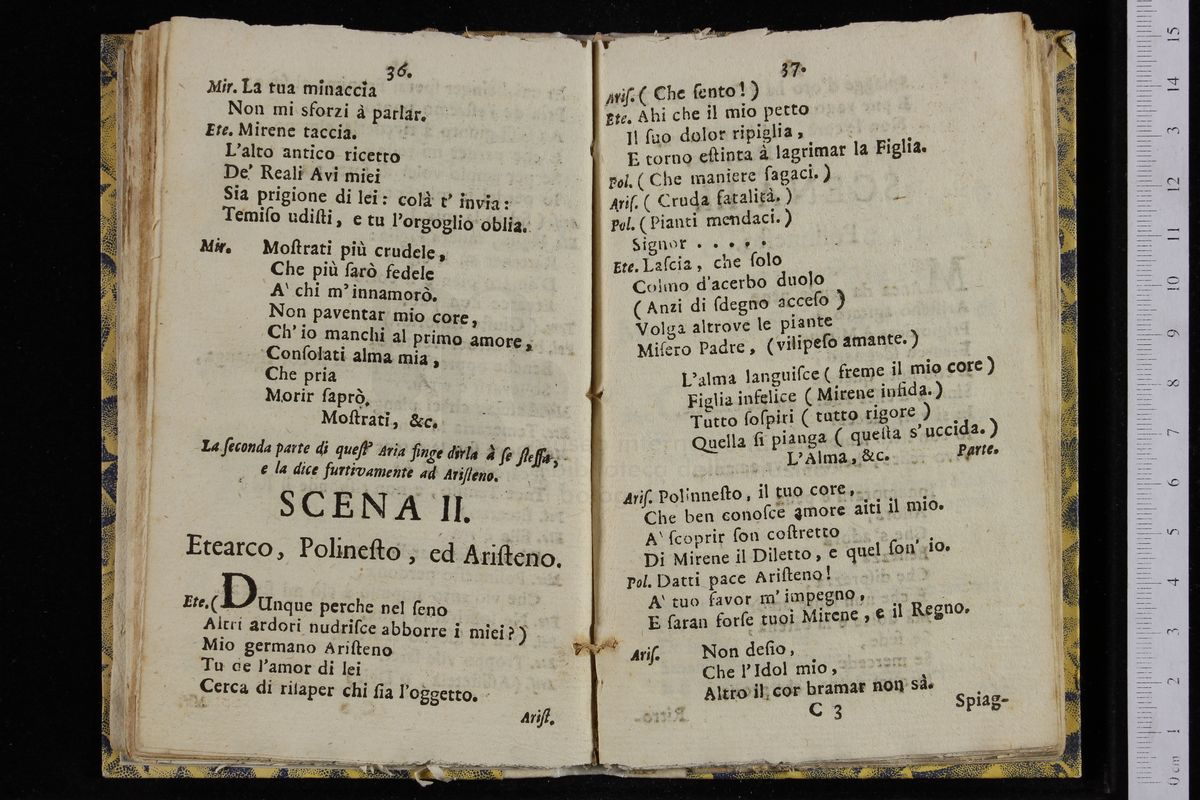 36.
Mir. La tua minaccia
Non mi sforzi à parlar.
Ete. Mirene taccia.
L'alto antico ricetto
De' Reali Avi miei
Sia prigione di lei: colà t' invia:
Temiſo udiſti, e tu l'orgoglio oblia.
Mir. Moſtrati più crudele,
Che più ſarò fedele
A' chi m'innamorò.
Non paventar mio core,
Ch' io manchi al primo amore,
Conſolati alma mia,
Che pria
Morir ſaprò.
Moſtrati, &c.
La ſeconda parte di queſt' Aria finge dirla à ſe ſteſſa,
e la dice furtivamente ad Ariſteno.
SCENA II.
Etearco, Polineſto, ed Ariſteno.
Ete. ( DUnque perche nel ſeno
Altri ardori nudriſce abborre i miei? )
Mio germano Ariſteno
Tu de l'amor di lei
Cerca di riſaper chi ſia l'oggetto.
Ariſt.
37.
Ariſ. ( Che ſento! )
Ete. Ahi che il mio petto
Il ſuo dolor ripiglia,
E torno eſtinta à lagrimar la Figlia.
Pol. ( Che maniere ſagaci. )
Ariſ. ( Cruda fatalità. )
Pol. ( Pianti mendaci. )
Signor . . . . .
Ete. Laſcia, che ſolo
Colmo d'acerbo duolo
( Anzi di ſdegno acceſo )
Volga altrove le piante
Miſero Padre, (vilipeſo amante. )
L'alma languiſce ( freme il mio core )
Figlia infelice ( Mirene infida. )
Tutto ſoſpiri ( tutto rigore )
Quella ſi pianga ( queſta s'uccida. )
L'Alma, &c. Parte.
Ariſ. Polinneſto, il tuo core,
Che ben conoſce amore aiti il mio.
A' ſcoprir ſon coſtretto
Di Mirene il Diletto, e quel ſon' io.
Pol. Datti pace Ariſteno!
A' tuo favor m' impegno,
E ſaran forſe tuoi Mirene, e il Regno.
Ariſ. Non deſio,
Che l'Idol mio,
Altro il cor bramar non sà.
C 3
Spiag-
0 cm 1 2 3 4 5 6 7 8 9 10 11 12 13 14 15